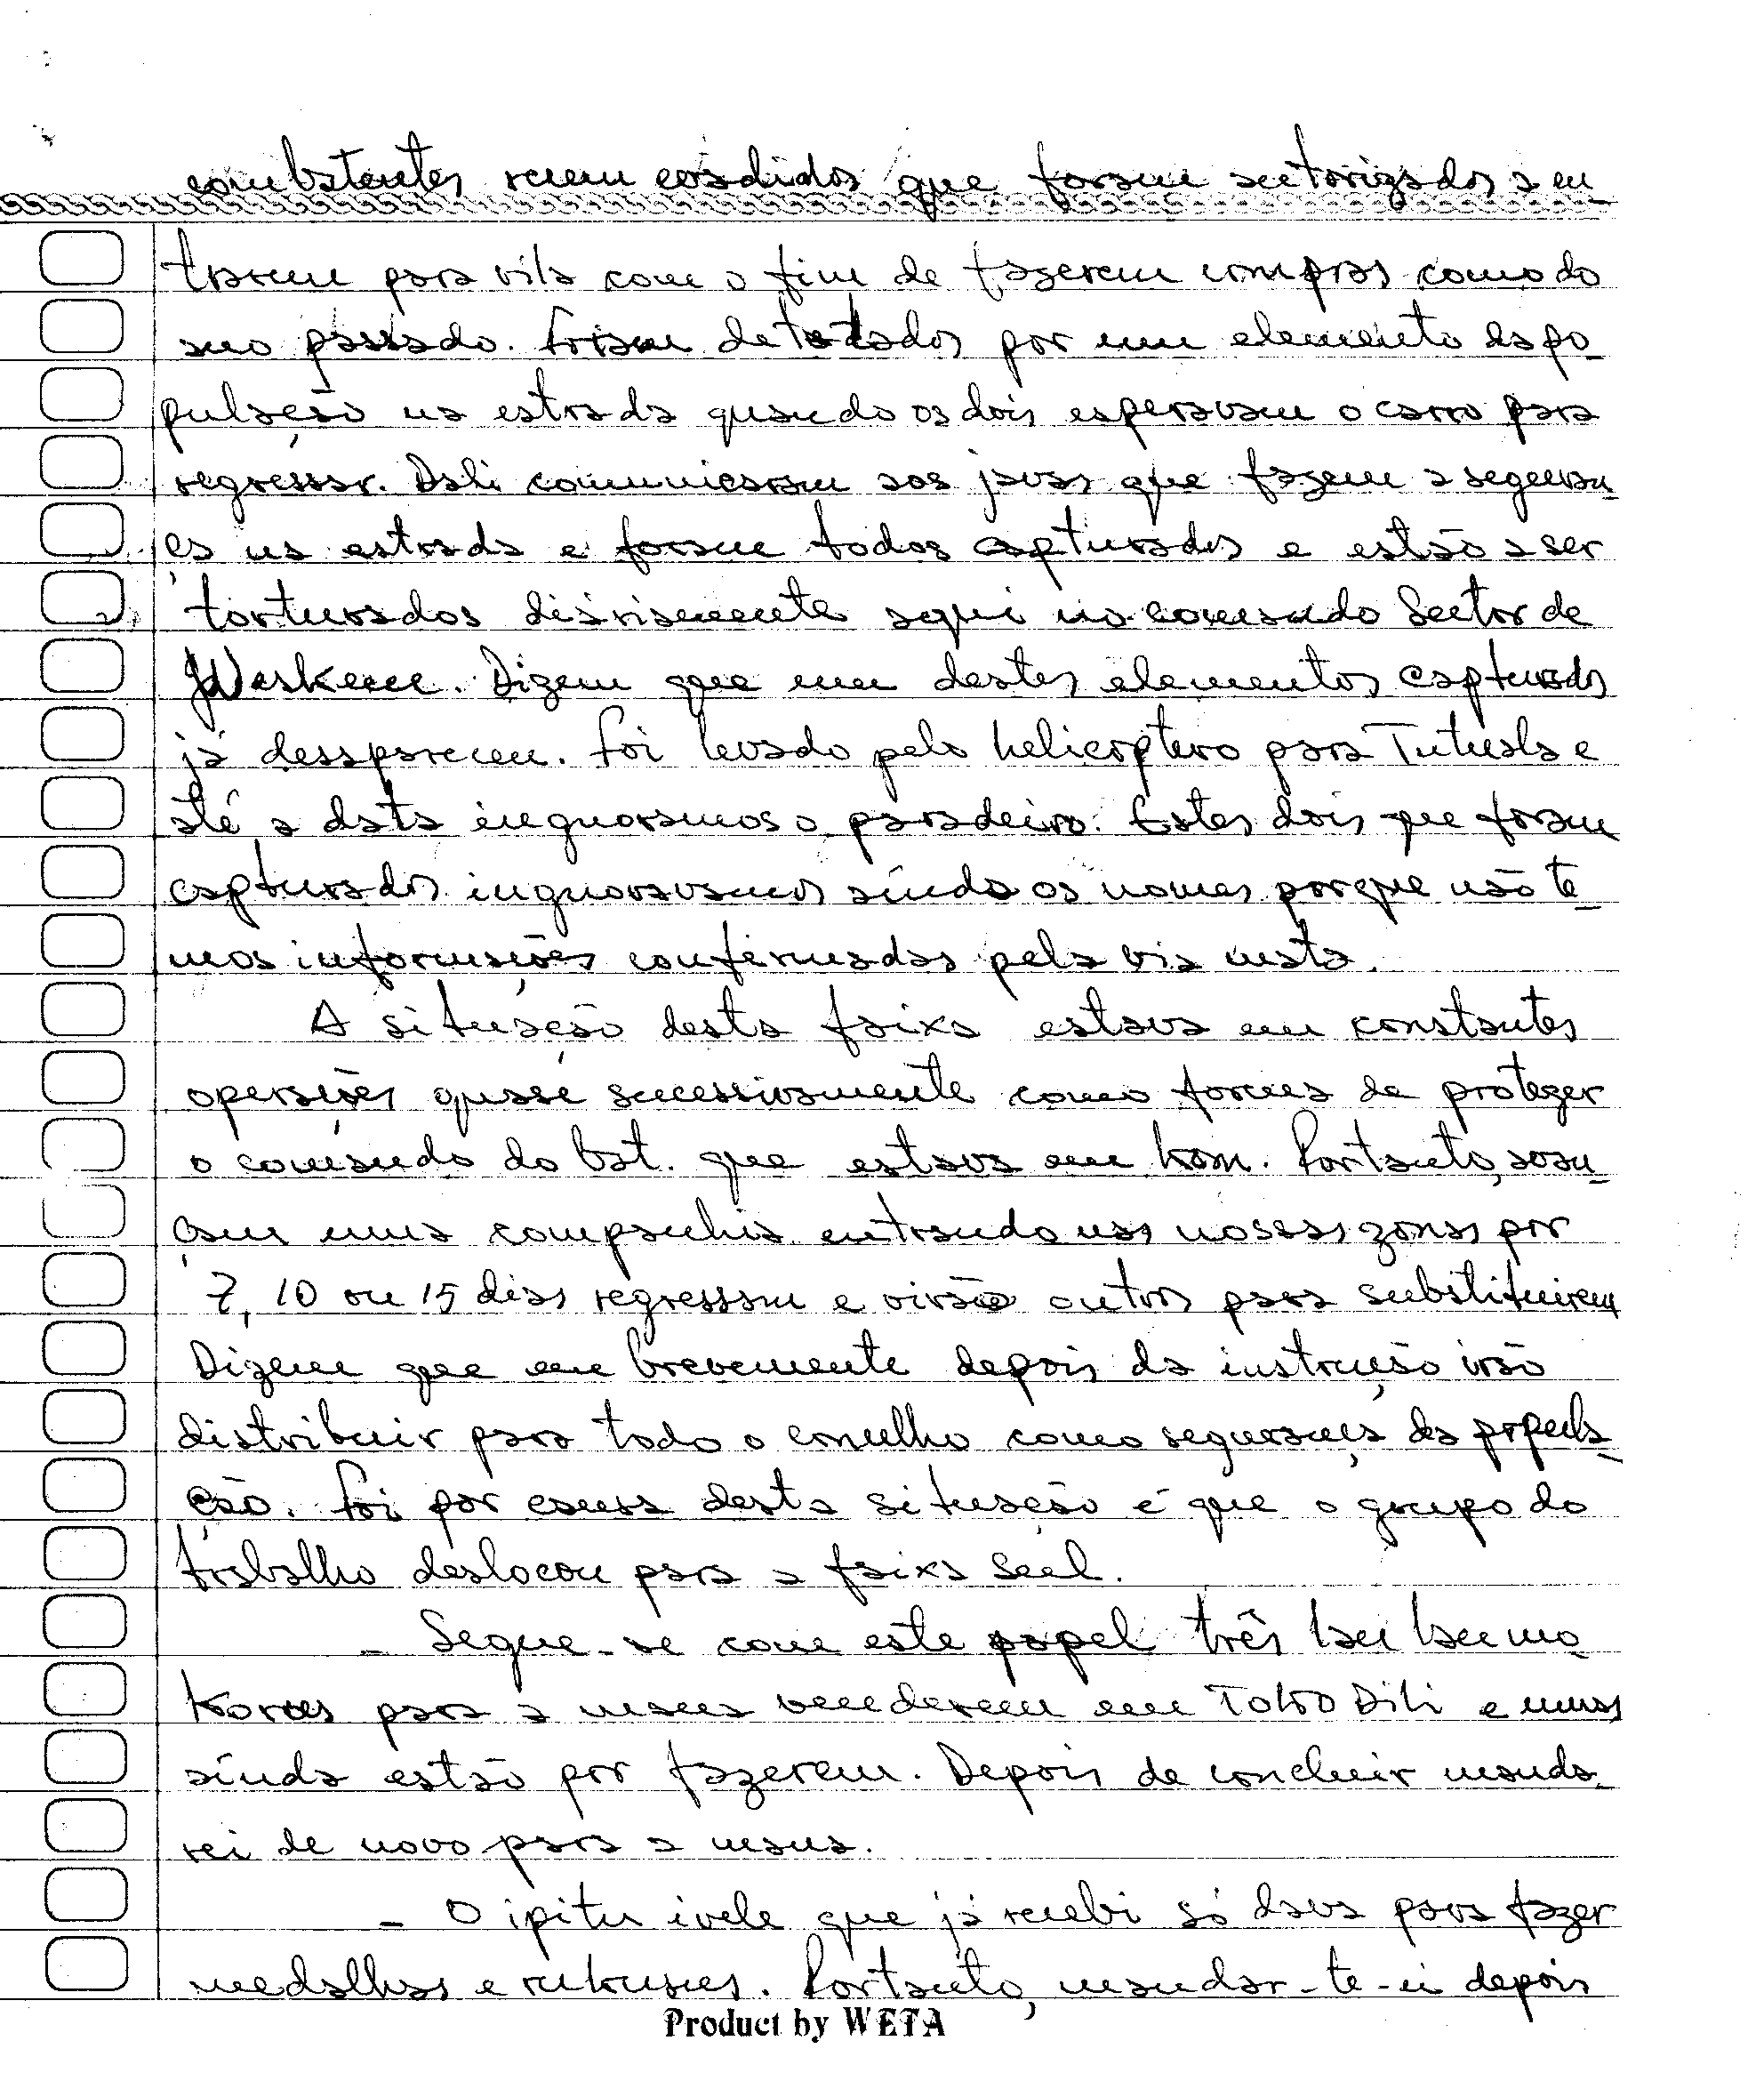 combatentes recem eradidos que foram autorizados a en-
trarem para vila com o fim de fazerem compras como do
ano passado. Foram detetados por um elemento da po-
pulação na estrada quando os dois esperavam o carro para
regressar. Dali comunicaram aos javas que fazem a seguran-
ça na estrada e foram todos capturados e estão a ser
torturados diáriamente aqui no comando Sector de
Dizem que um destes elementos capturados
já desapareceu. Foi levado pelo helicoptero para Tutuala e
até a data inguoramos o paradeiro. Estes dois que foram
capturados inguoravamos aínda os nomes porque não te-
mos informações confirmadas pela via nata.
A situação desta faixa estava em constantes
operações quase sucessivamente como forma de proteger
o comando do bat. que estava em hom. Portanto, avan-
çam uma companhia entrando nas nossas zonas por
7, 10 ou 15 dias regressam e virão outros para substituirem
Dizem que em brevemente depois da instrução irão
distribuir para todo o conselho como segurança da popula-
ção. Foi por causa desta situação é que o grupo do
trabalho deslocou para a faixa Seal.
- Segue-se com este papel três
para a mana venderem em Dili e umas
aínda estão por fazerem. Depois de concluir manda-
rei de novo para a mana.
- O ipitu ivele que já recebi só dava para fazer
medalhas e Portanto, mandar-te-ei depois
Product by WETA